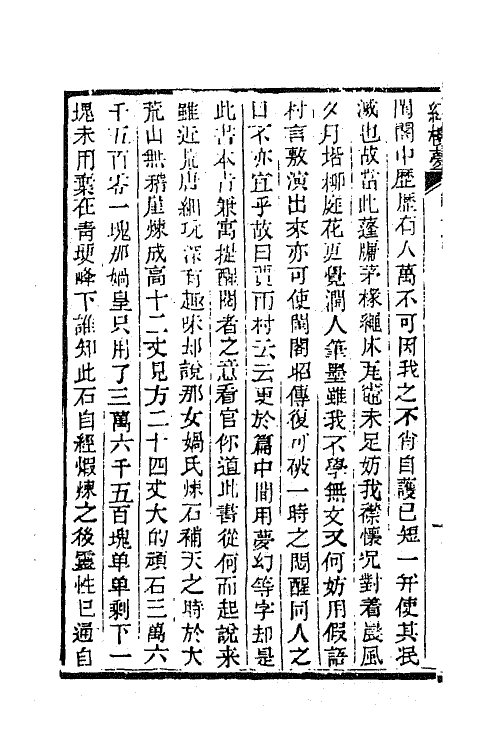 紅樓夢
閨閣中歷歷有人萬不可因我之不肖自護已短一并使其泯
滅也故當此蓬牖茅椽繩床瓦竈未足妨我襟懷况對着晨風
夕月堦柳庭花更覺潤人筆墨雖我不學無文又何妨用假語
村言敷演出來亦可使閨閣昭傳復可破一時之悶醒同人之
目不亦宜乎故曰賈雨村云云更於篇中間用夢幻等字却是
此書本旨兼寓提醒閱者之意看官你道此書從何而起說來
雖近荒唐細玩深有趣味却說那女媧氏煉石補天之時於大
荒山無稽崖煉成高十二丈見方二十四丈大的頑石三萬六
千五百零一塊那媧皇只用了三萬六千五百塊单单剩下一
塊未用棄在青埂峰下誰知此石自經煆煉之後靈性已通自